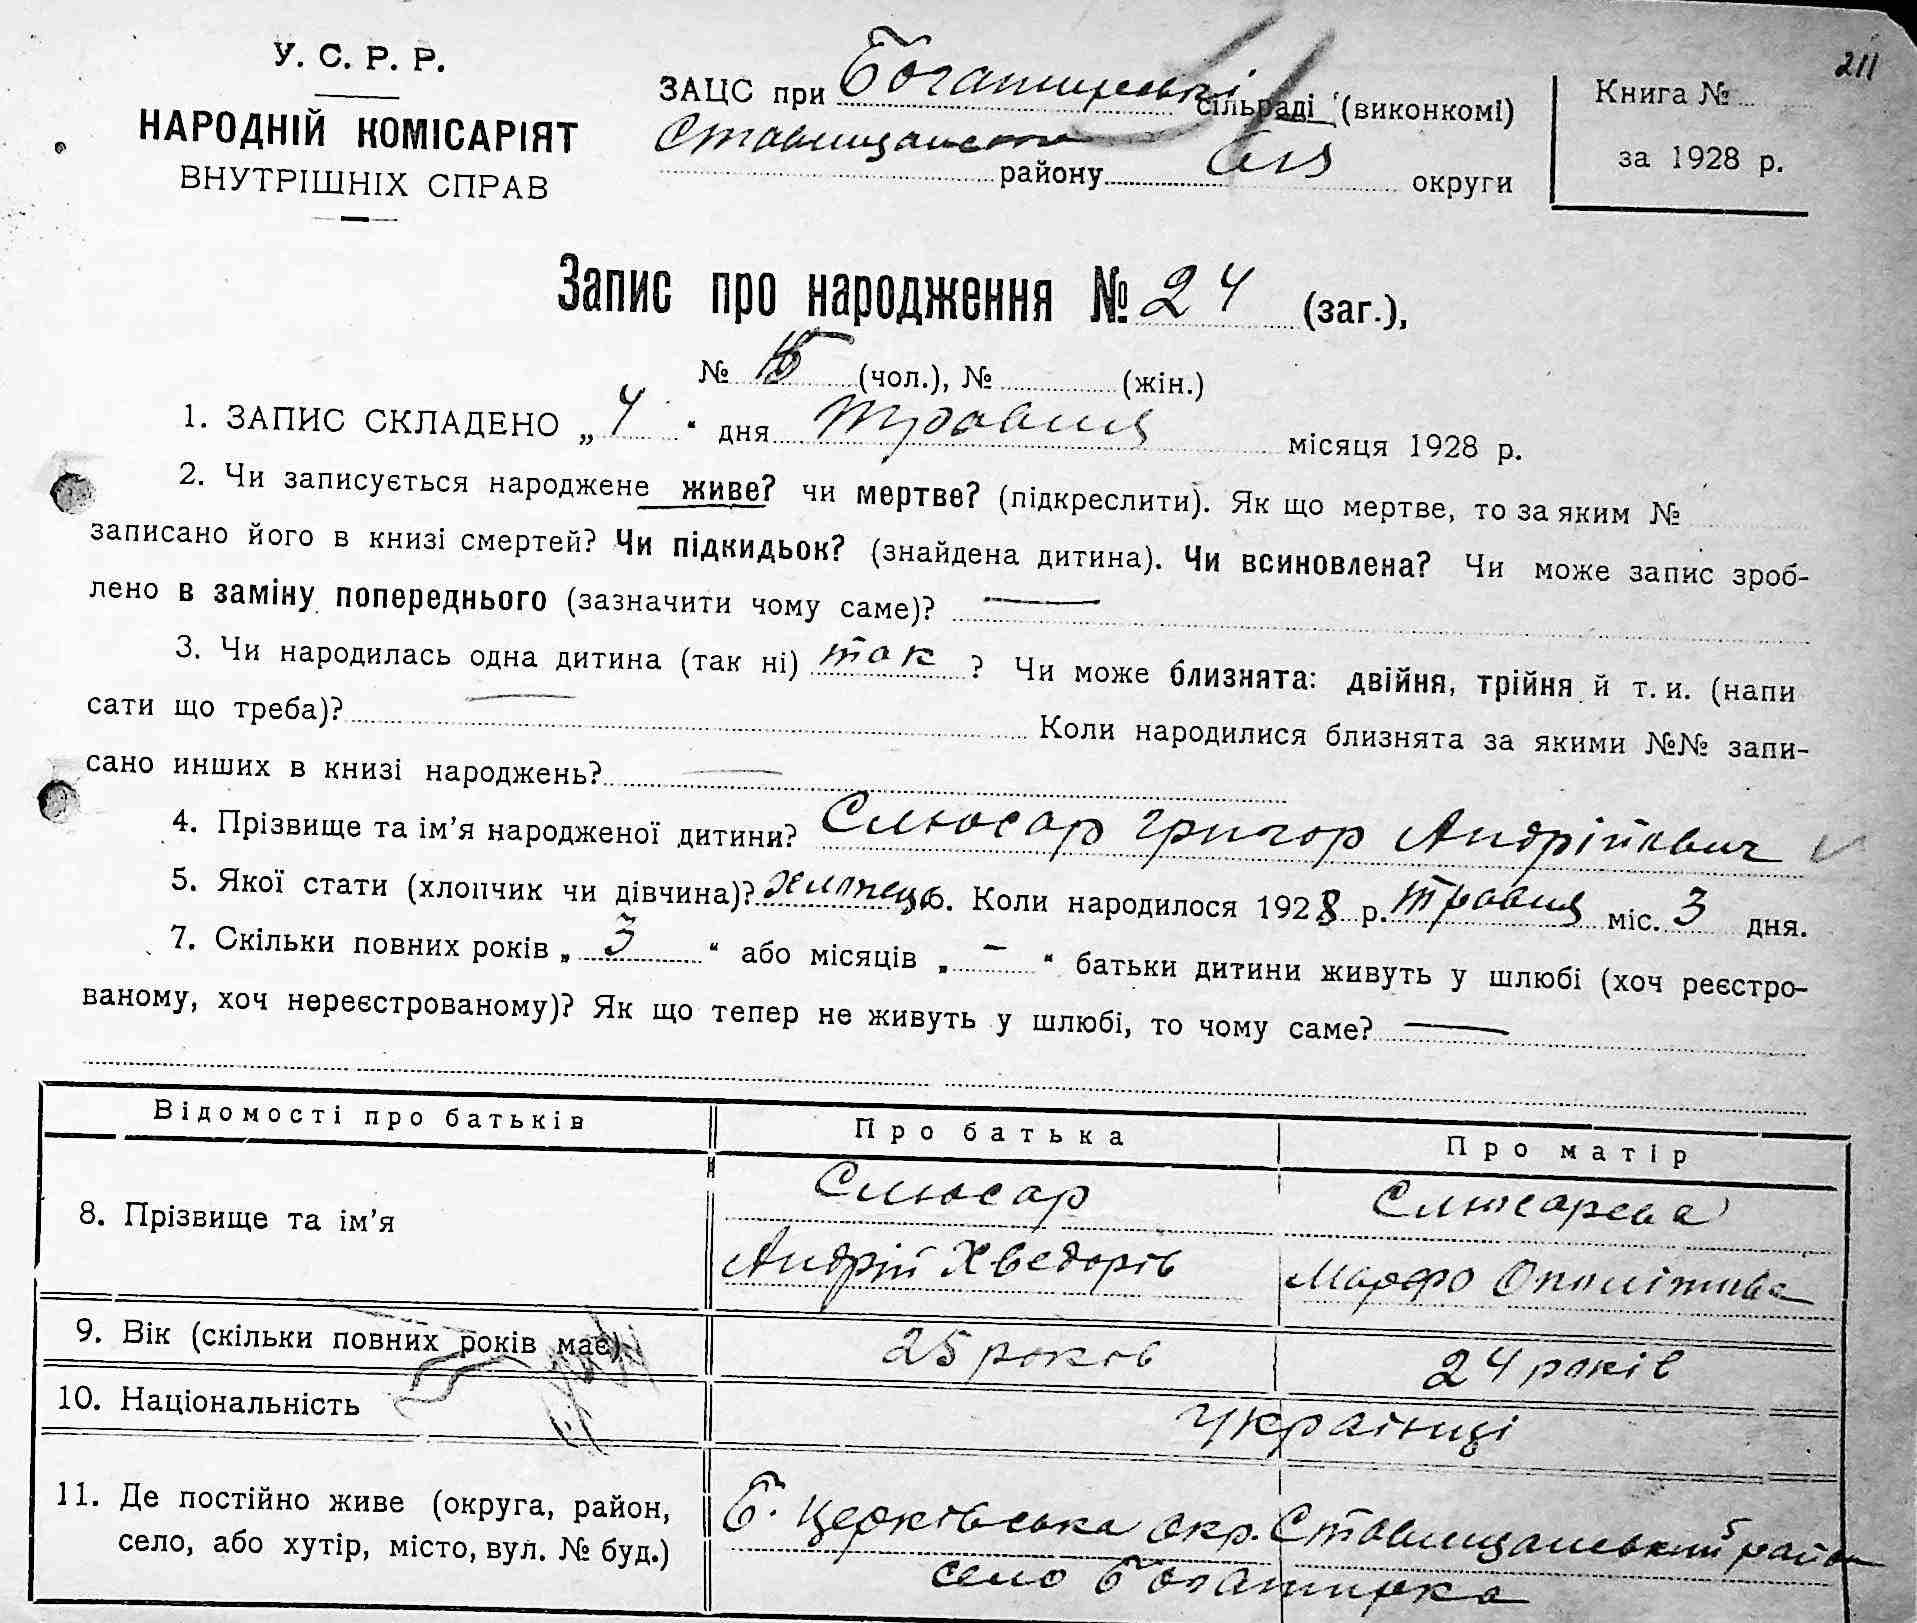 211
У. С. Р. Р.
НАРОДНІЙ КОМІСАРІЯТ
ВНУТРІШНІХ СПРАВ
ЗАЦС при Богатирській сільраді (виконкомі)
Ставищанського району округи
Книга №
за 1928 р.
Запис про народження № 24 (заг.),
№ 15 (чол.), № (жін.)
1. ЗАПИС СКЛАДЕНО „ 4 “ дня травня місяця 1928 р.
2. Чи записується народжене живе? чи мертве? (підкреслити). Як що мертве, то за яким №
записано його в книзі смертей? Чи підкидьок? (знайдена дитина). Чи всиновлена? Чи може запис зроб-
лено в заміну попереднього (зазначити чому саме)? —
3. Чи народилась одна дитина (так ні) так ? Чи може близнята: двійня, трійня й т. и. (напи
сати що треба)? — Коли народилися близнята за якими №№ запи-
сано инших в книзі народжень? —
4. Прізвище та ім’я народженої дитини? Слюсар Григор Андрійович
5. Якої стати (хлопчик чи дівчина)? хлопець 6. Коли народилося 1928 р. травня міс. 3 дня.
7. Скільки повних років „ 3 “ або місяців „ – “ батьки дитини живуть у шлюбі (хоч реєстро-
ваному, хоч нереєстрованому)? Як що тепер не живуть у шлюбі, то чому саме? —
Відомості про батьків Про батька Про матір
8. Прізвище та ім’я Слюсар Слюсарева
Андрій Хведорів Марфа Ополітова
9. Вік (скільки повних років має) 25 років 24 років
10. Національність українці
11. Де постійно живе (округа, район,
село, або хутір, місто, вул. № буд.)
Б. Церківська окр. Ставищанський район
село Богатирка